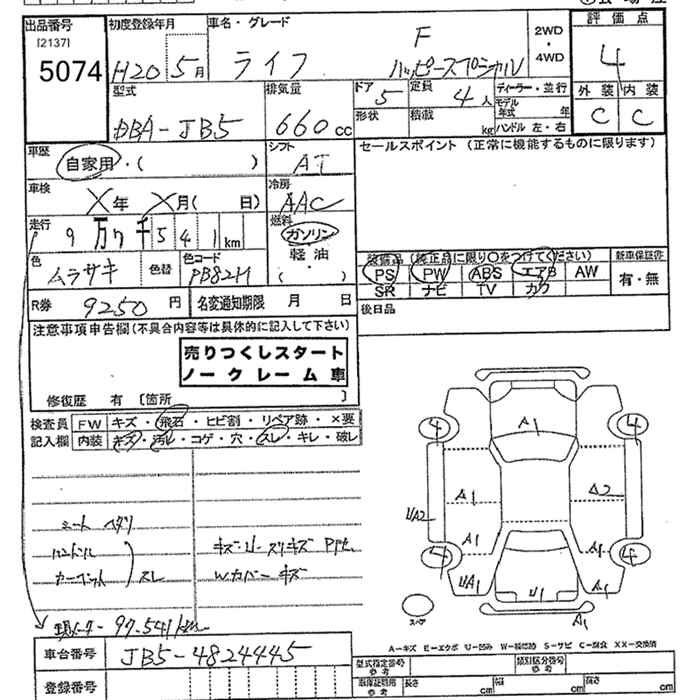 出品番号 初度登録年月 車名・グレード 2WD・4WD 評価点
[2137]
5074 H20 5月 ライフ F ハッピースペシャル 4
型式 排気量 ドア 5 定員 4人 ディーラー・並行 外装 内装
DBA-JB5 660cc 形状 積載 kg モデル年式 年 ハンドル 左・右 C C
車歴 自家用・( ) シフト AT セールスポイント (正常に機能するものに限ります)
車検 X年 X月( 日) 冷房 AAC
走行 9万7千541km 燃料 ガソリン 軽油・( )
色 ムラサキ 色替 色コード PB82M
装備品(純正品に限り○をつけてください) 新車保証書
PS PW ABS エアB AW 有・無
SR ナビ TV カワ
R券 9250円 名変通知期限 月 日 後日品
注意事項申告欄(不具合内容等は具体的に記入して下さい)
売りつくしスタート
ノークレーム車
修復歴 有 [箇所 ]
検査員 FW キズ・飛石・ヒビ割・リペア跡・×要
記入欄 内装 キズ・汚れ・コゲ・穴・スレ・キレ・破レ
シート ヘタリ
ハンドル
カーペット スレ
キズ・U・スリキズ
Wカバー キズ
97,541km
4 4 4 4
A1 A1 A2 UA2 A1 A1 UA1 U1 A1 A1
スペア
A-キズ E-エクボ U-凹み W-補修跡 S-サビ C-腐食 XX-交換済
車台番号 JB5-4824445 型式指定番号 参考 類別区分番号 参考
登録番号 車庫証明用 参考 長さ cm 幅 cm 高さ cm